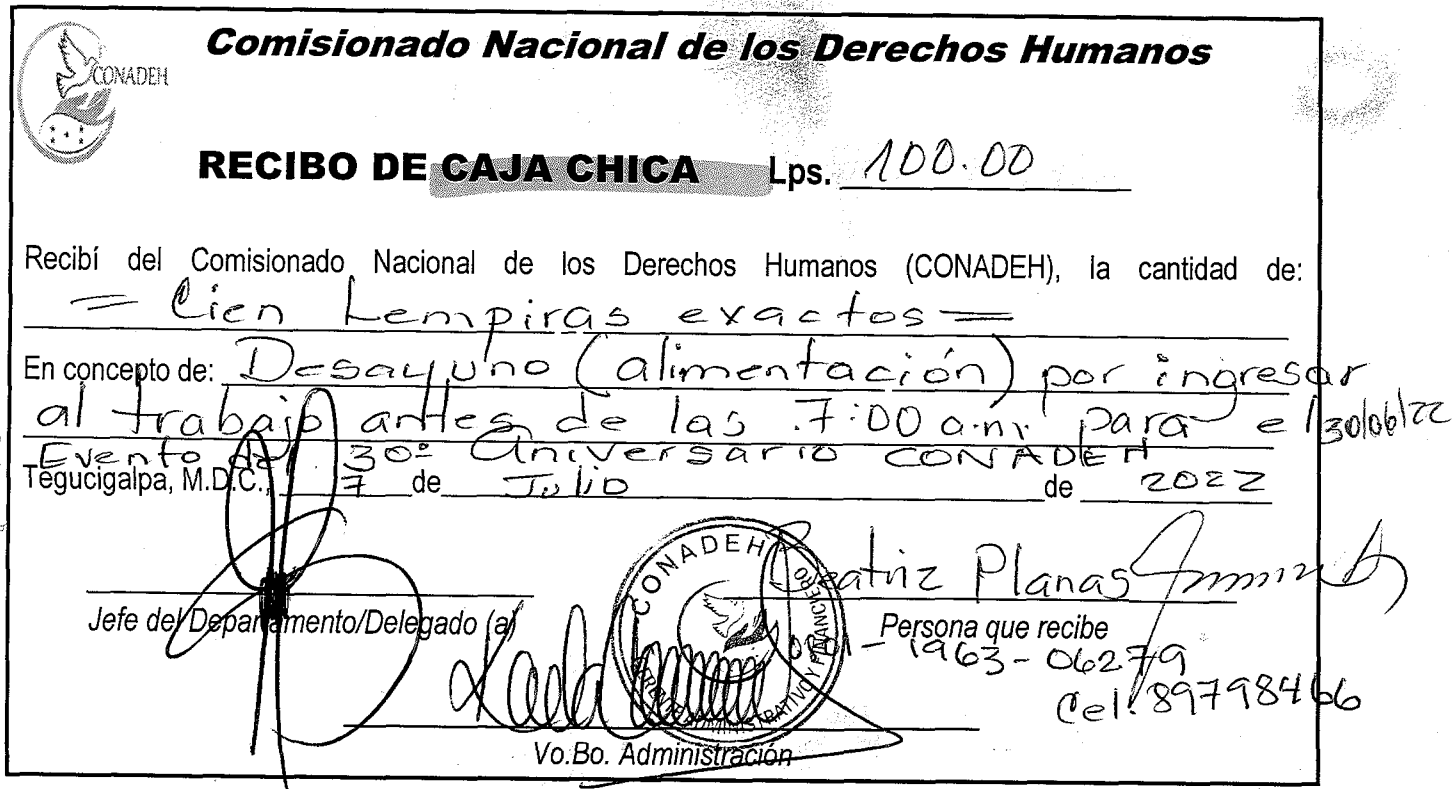 Comisionado Nacional de los Derechos Humanos
CONADEH
RECIBO DE CAJA CHICA Lps. 100.00
Recibí del Comisionado Nacional de los Derechos Humanos (CONADEH), la cantidad de:
= Cien Lempiras exactos =
En concepto de: Desayuno (alimentación) por ingresar
al trabajo antes de las 7:00 a.m. para el 30/06/22
Evento del 30º Aniversario CONADEH
Tegucigalpa, M.D.C., 7 de Julio de 2022
CONADEH
Beatriz Planas
Jefe del Departamento/Delegado (a)
Persona que recibe
1963-06279
Cel. 89798466
ADMINISTRATIVO Y FINANCIERO
Vo.Bo. Administración